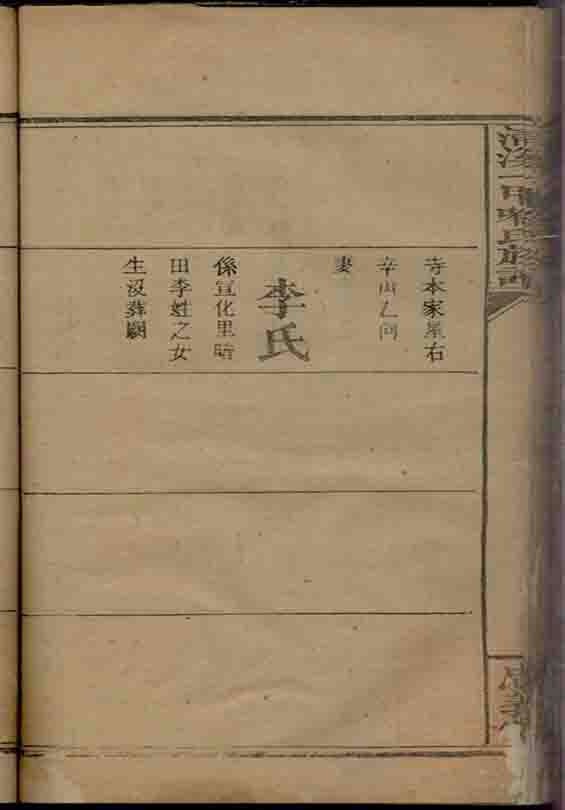 寺本家屋右
辛山乙向
妻
李氏
係宣化里暗
田李姓之女
生没葬闕